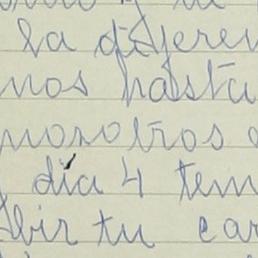 la diferen
nos hasta
nosotros
día 4 tem
bir tu car